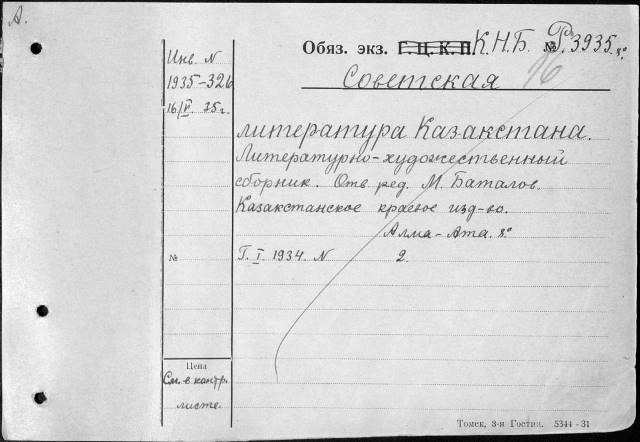 А.
Обяз. экз. Г.Ц.К.П. К.Н.Б. № Р. 3935. 8°
16
Инв. N
1935-326
16/V 35 г.
Советская
литература Казакстана.
Литературно-художественный
сборник. Отв. ред. М. Баталов.
Казакстанское краевое изд-во.
Алма-Ата. 8°
№
Г. I. 1934. N 2.
Цена
См. в контр.
листе.
Томск, 3-я Гостип. 5344 - 31